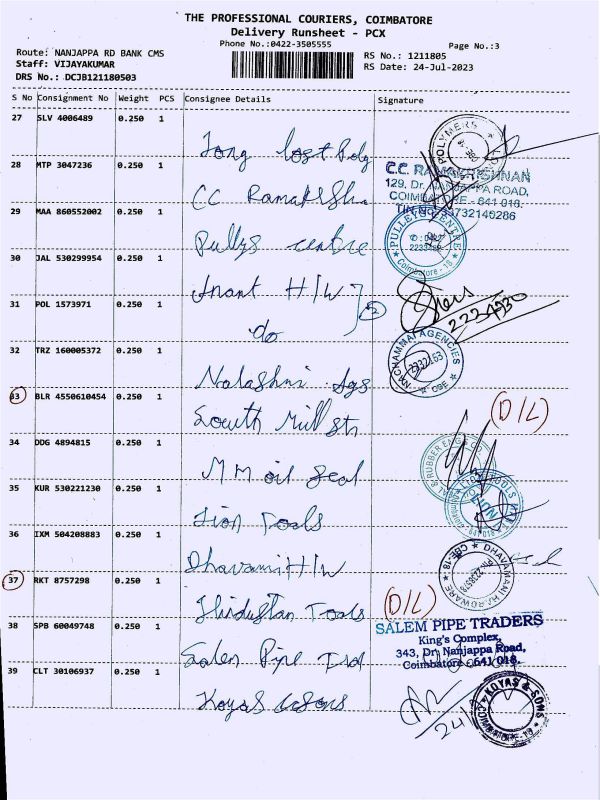 THE PROFESSIONAL COURIERS, COIMBATORE
Delivery Runsheet - PCX
Phone No.:0422-3505555
Page No.:3
Route: NANJAPPA RD BANK CMS
Staff: VIJAYAKUMAR
DRS No.: DCJB121180503
RS No.: 1211805
RS Date: 24-Jul-2023
S No Consignment No Weight PCS Consignee Details Signature
27 SLV 4006489 0.250 1
POLYMERS
28 MTP 3047236 0.250 1
CC Ramaksh
C.C. RAMAKRISHNAN
129, Dr. NANJAPPA ROAD,
COIMBATORE - 641 018.
29 MAA 860552002 0.250 1
Pullys centre
PULLEYS CENTRE
Coimbatore - 18
30 JAL 530299954 0.250 1
Anant H/W
31 POL 1573971 0.250 1
do
2
2234930
32 TRZ 160005372 0.250 1
Nalashmi Ags
NACHAMMAI AGENCIES
CBE
33 BLR 4550610454 0.250 1
South Mill St
(D/L)
34 DDG 4894815 0.250 1
MM oil Seal
35 KUR 530221230 0.250 1
Lion Tools
36 IXM 504208883 0.250 1
Dhavami H/W
DHAVAMANI HARDWARE
CBE-18
37 RKT 8757298 0.250 1
Hindustan Tools
(D/L)
38 SPB 60049748 0.250 1
Salem Pipe Trd
SALEM PIPE TRADERS
King's Complex,
343, Dr. Nanjappa Road,
Coimbatore - 641 018.
39 CLT 30106937 0.250 1
Koyas & Sons
KOYAS & SONS
COIMBATORE-18
24